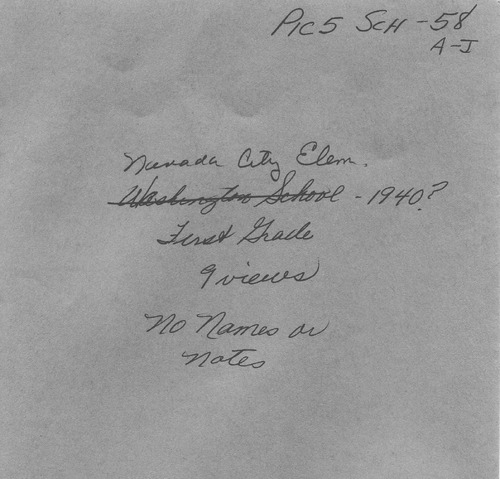 PIC5 SCH - 58
A-J
Nevada City Elem.
Washington School - 1940?
First Grade
9 views
No Names or
Notes